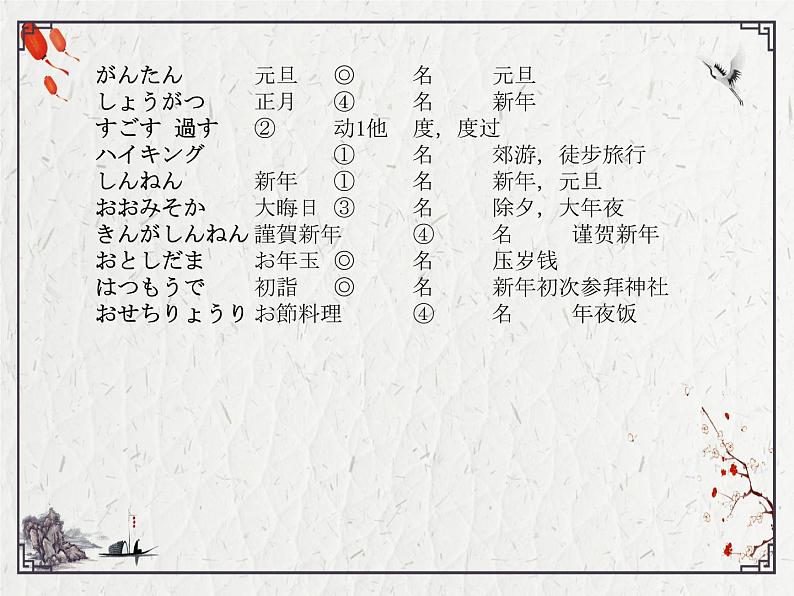 がんたん 元旦 ◎ 名 元旦
しょうがつ 正月 ④ 名 新年
すごす 過す ② 动1他 度，度过
ハイキング ① 名 郊游，徒步旅行
しんねん 新年 ① 名 新年，元旦
おおみそか 大晦日 ③ 名 除夕，大年夜
きんがしんねん 謹賀新年 ④ 名 谨贺新年
おとしだま お年玉 ◎ 名 压岁钱
はつもうで 初詣 ◎ 名 新年初次参拜神社
おせちりょうり お節料理 ④ 名 年夜饭